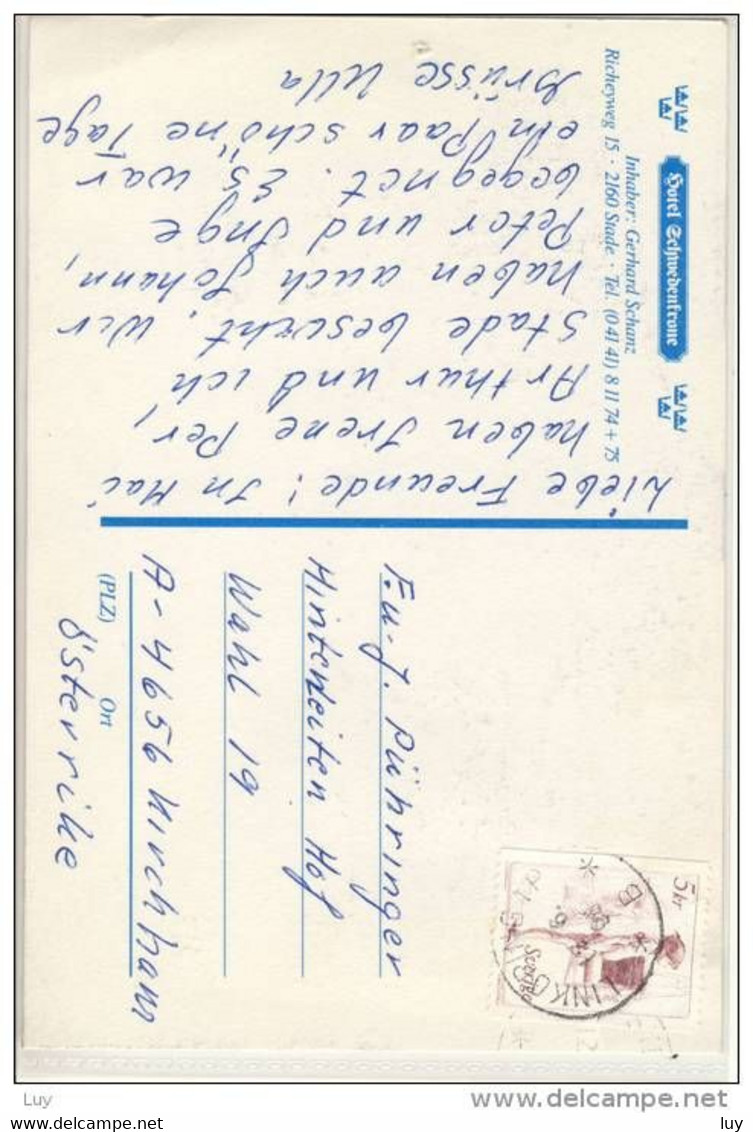 Hotel Schwedenkrone
Inhaber: Gerhard Schanz
Richeyweg 15 · 2160 Stade · Tel. (0 41 41) 8 11 74 + 75
Liebe Freunde! In Mai
haben Irene Per,
Arthur und ich
Stade besucht. Wir
haben auch Johann,
Peter und Inge
begegnet. Es war
ein Paar schöne Tage
Grüsse Ulla
5 kr
Sverige
F. u. J. Pühringer
Hinterleiten Hof
Wahl 19
A-4656 Kirchham
(PLZ) Ort
Österrike
Luy
delcampe.net
Luy
luy